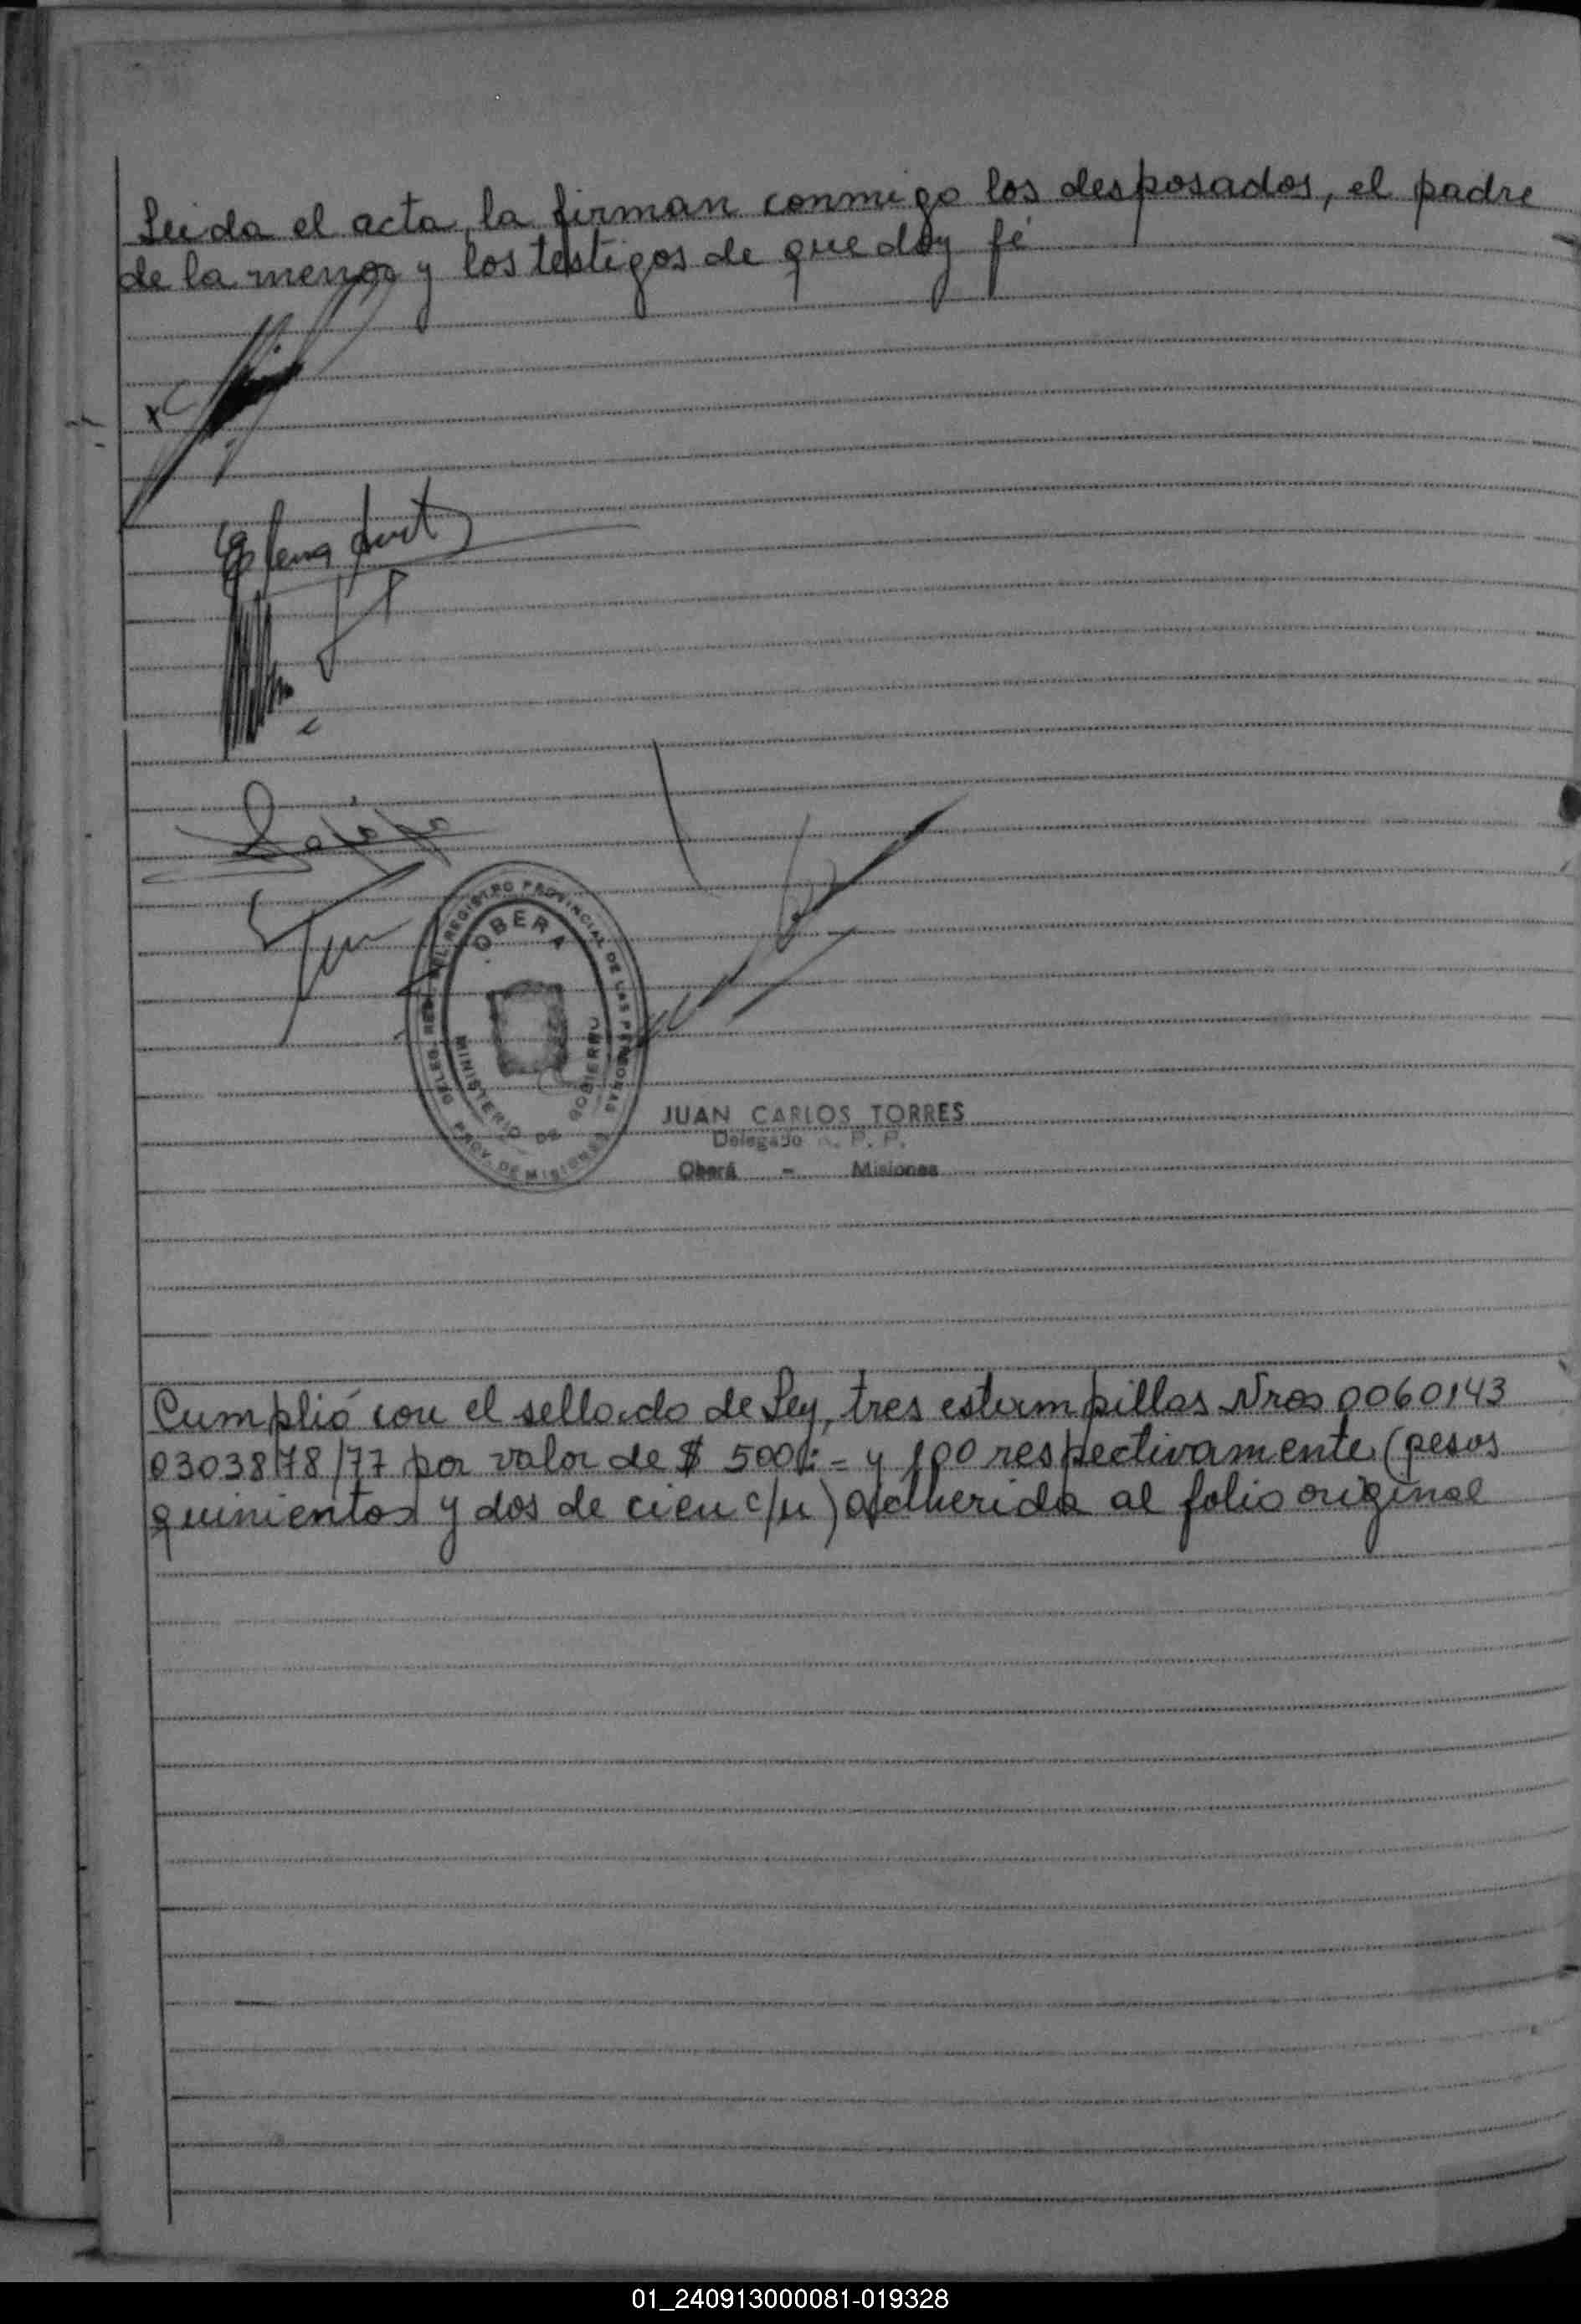 Leida el acta, la firman conmigo los desposados, el padre
de la menor y los testigos de que doy fé
REGISTRO PROVINCIAL DE LAS PERSONAS
OBERA
MINISTERIO DE GOBIERNO
PROV. DE MISIONES
JUAN CARLOS TORRES
Delegado R. P. P.
Oberá - Misiones
Cumplió con el sellado de Ley, tres estampillas Nros 0060143
0303878/77 por valor de $ 500.= y 100 respectivamente (pesos
quinientos y dos de cien c/u) adherida al folio original
01_240913000081-019328